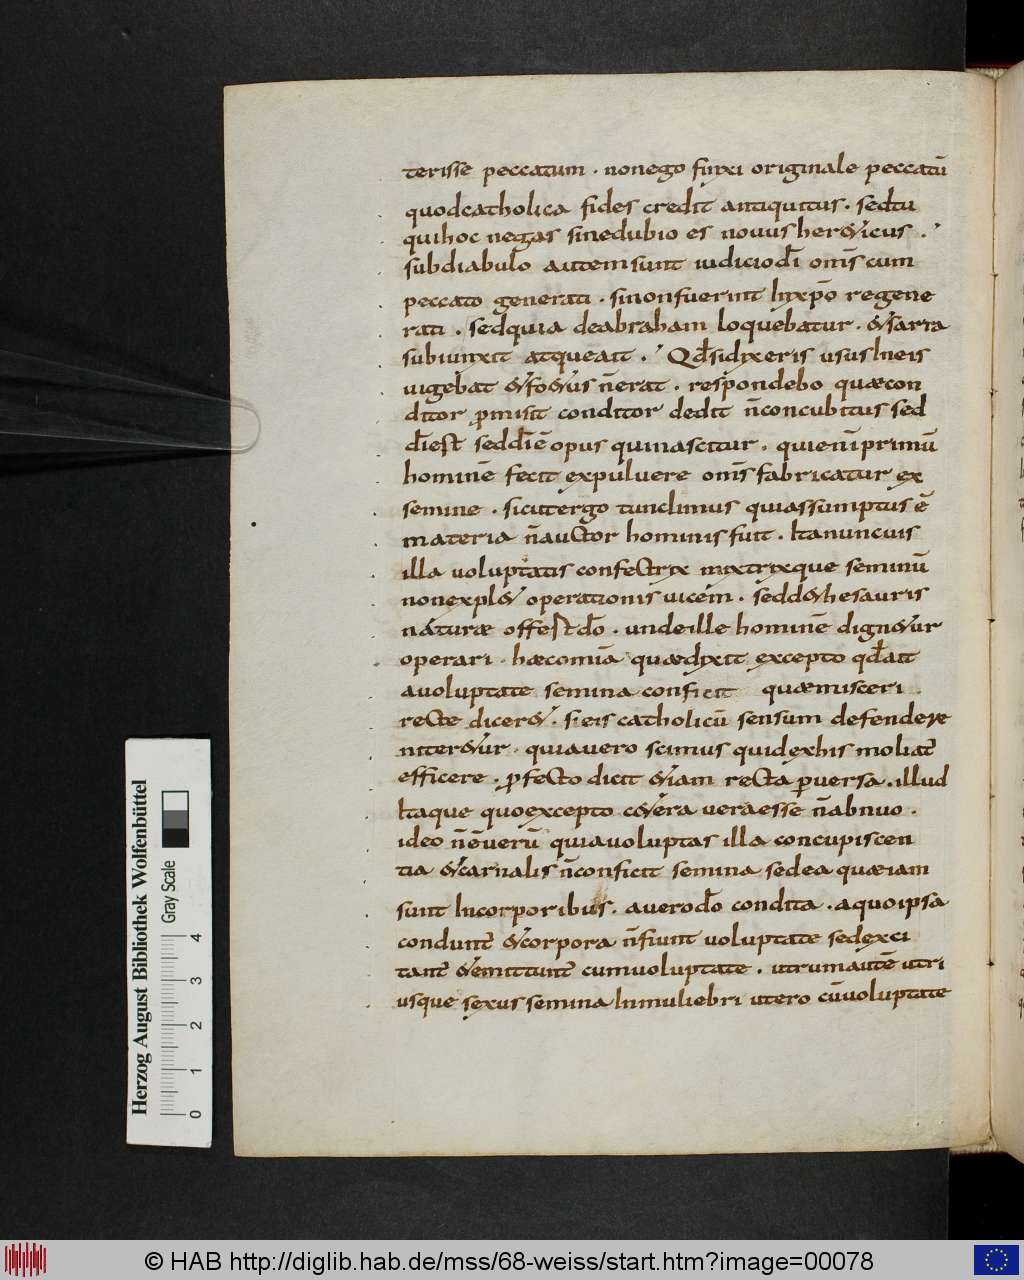 terisse peccatum · nonego finxi originale peccatū
quodcatholica fides credit antiquitus · sedtu
quihoc negas sinedubio es novus her&icus ·
subdiabulo autemsunt iudiciodī om̄s cum
peccato generati · sinonfuerint Inxpō regene
rati · sedquia deabraham loquebatur · &sarra
subiunxit atqueait · Qd̄sidixeris usus Ineis
vigebat &fo&us n̄erat · respondebo quæcon
ditor p̄misit conditor dedit n̄concubitus sed
dīest seddīē opus quinascitur · quienīprimū
hominē fecit expulvere om̄s fabricatur ex
semine · sicutergo tunclimus quiassumptus ē
materia n̄auctor hominis fuit · Itanuncuis
illa voluptatis confectrix mixtrixque seminū
nonexpl& operationis vicem · sedd&hesauris
naturæ offest dō · undeille hominē dign&ur
operari · hæcomīa quædixit excepto qd̄ait
avoluptate semina conficit quæmisceri
recte dicer& · sieis catholicū sensum defendere
niter&ur · quiavero scimus quidexhis moliat̄
efficere · p̄fecto dicit &iam recta pversa · illud
Itaque quoexcepto c&era veraesse n̄abnuo ·
ideo n̄ēverū quiavoluptas illa concupiscen
tia &carnalis n̄conficit semina sedea quæiam
sunt Incorporibus · averodō condita · aquoipsa
condunt̄ &corpora n̄fiunt voluptate sedexci
tant̄ &emittunt̄ cumvoluptate · utrumautē utri
usque sexus semina Inmuliebri utero cūvoluptate
Herzog August Bibliothek Wolfenbüttel
Gray Scale
0 1 2 3 4
© HAB http://diglib.hab.de/mss/68-weiss/start.htm?image=00078